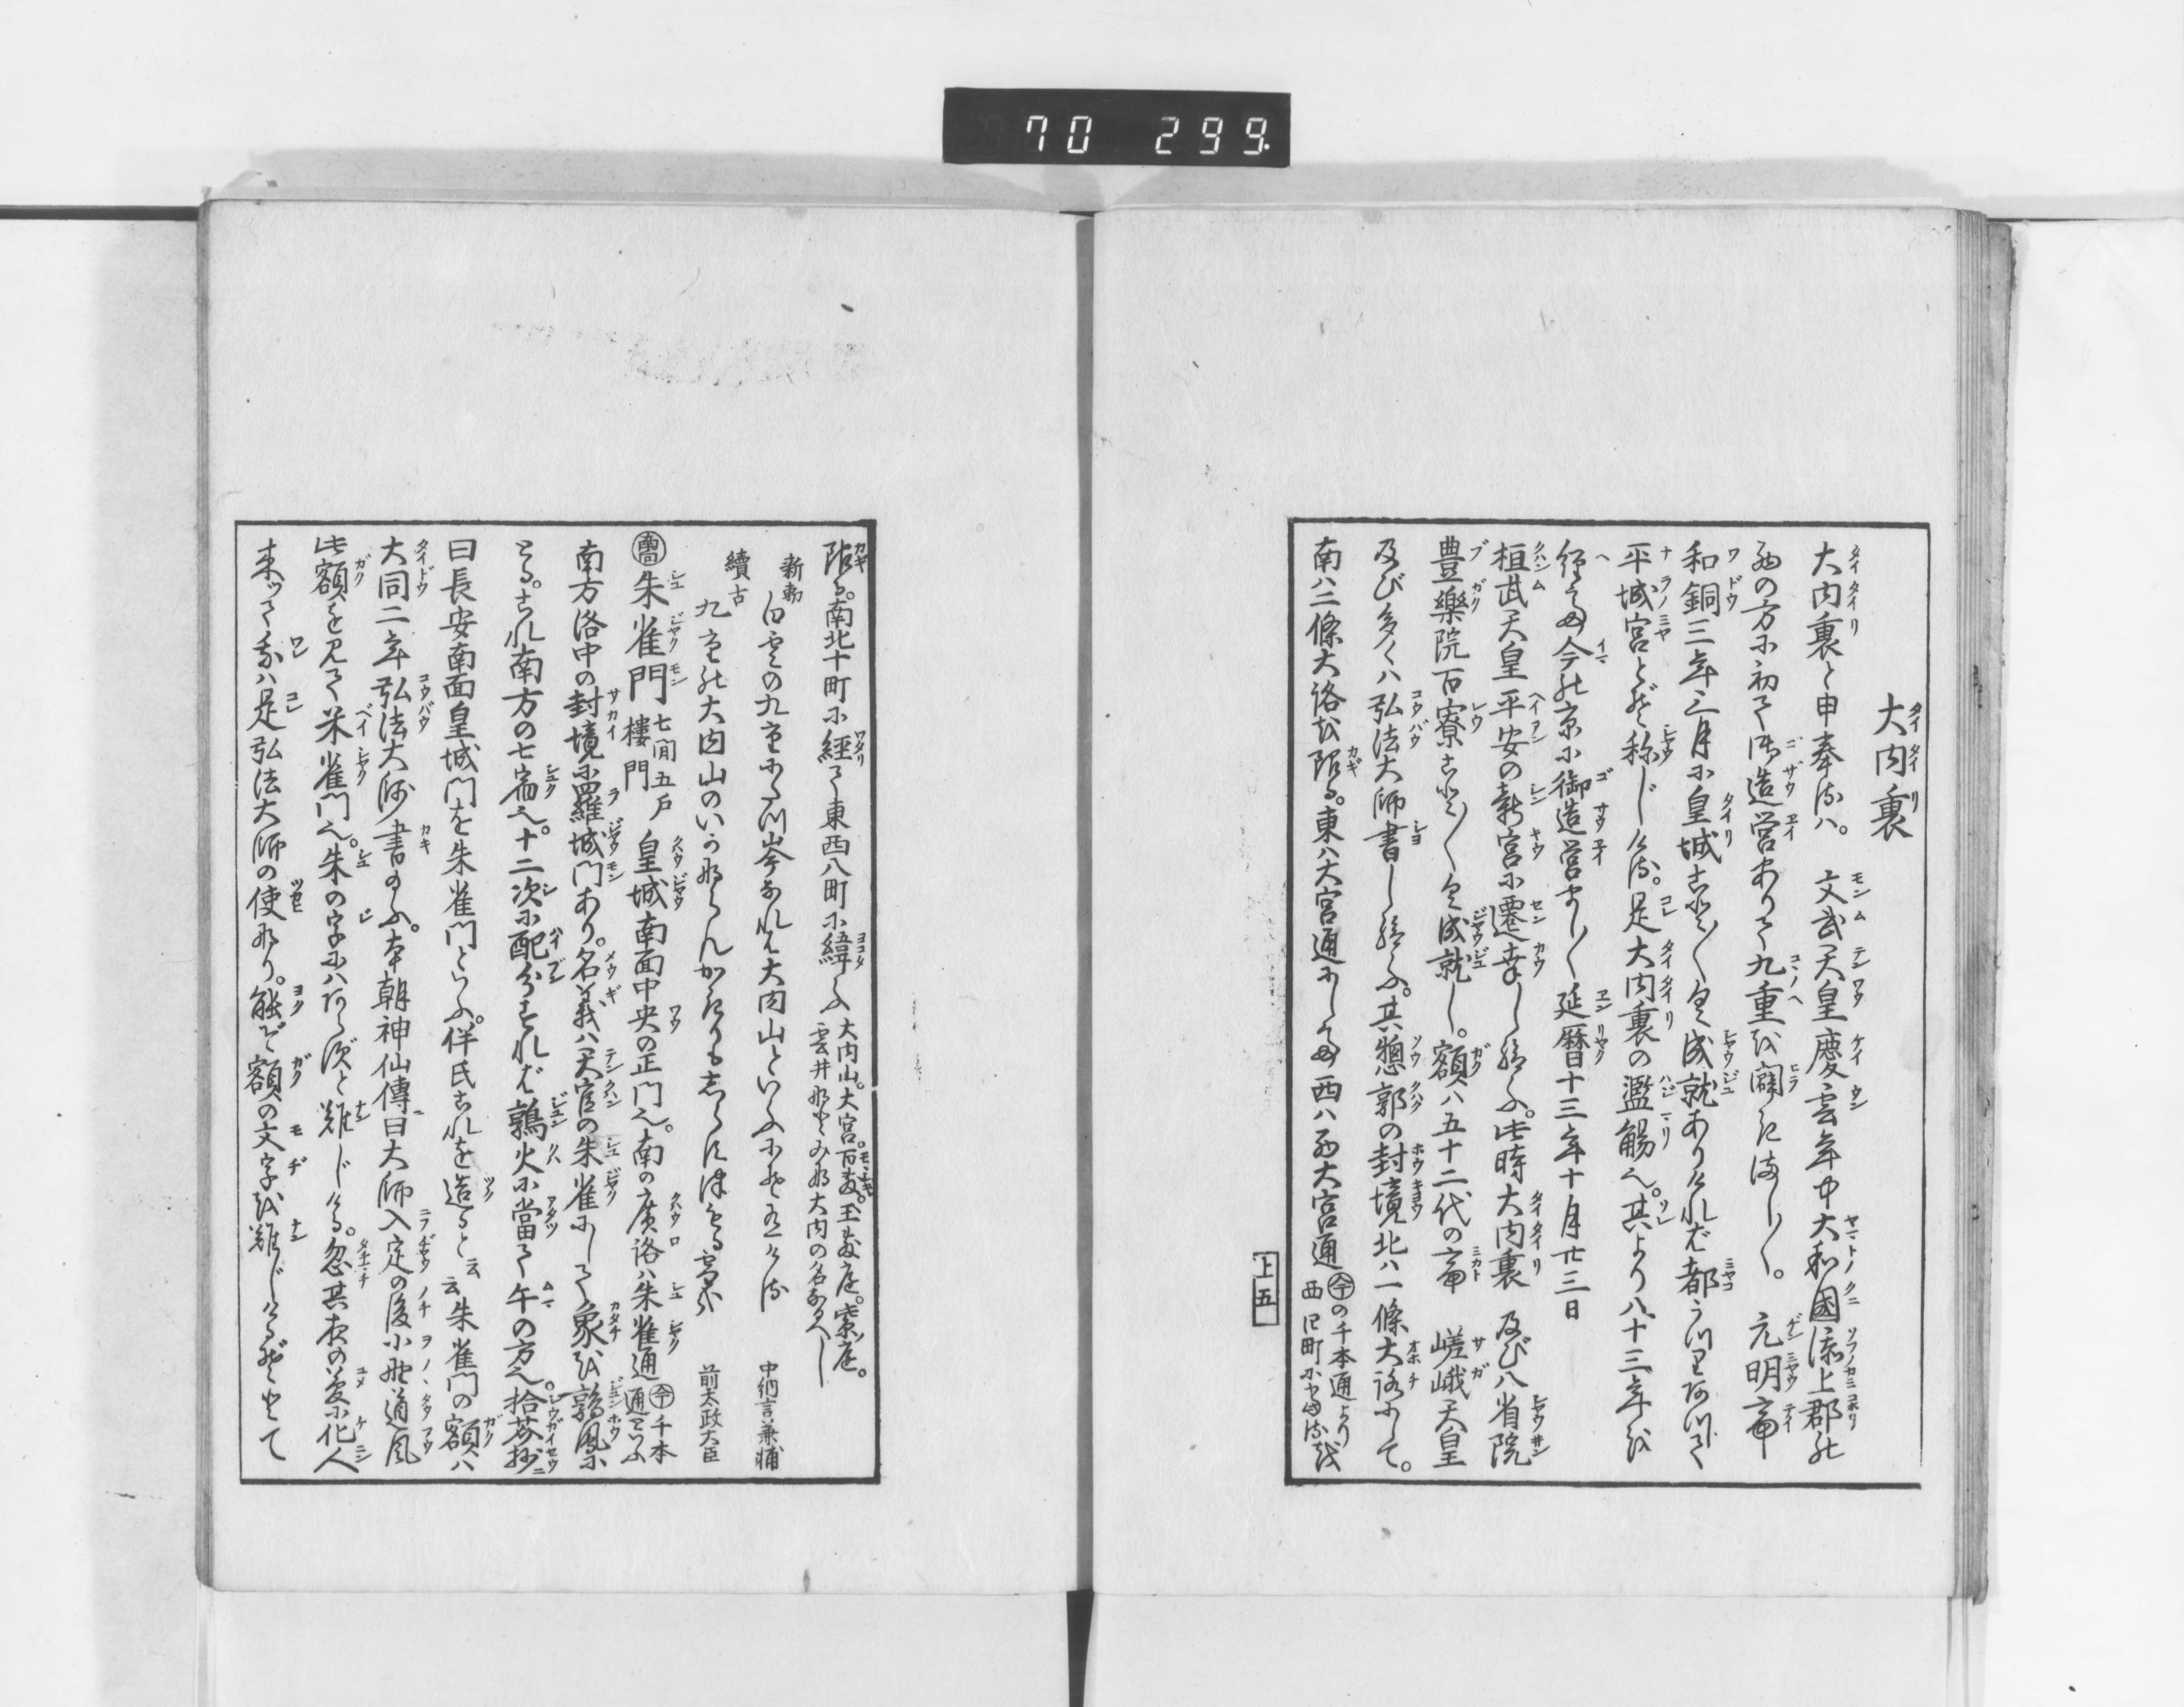 70 299.
大内裏
大内裏と申奉るハ。 文武天皇慶雲年中大和國添上郡の
西の方に初て御造営ありて九重を闢きまし〳〵。 元明帝
和銅三年三月に皇城こと〴〵く成就ありけれバ都うつりあつて
平城宮とぞ称じける。是大内裏の濫觴也。其より八十三年を
経て今の京に御造営まし〳〵延暦十三年十月廿三日
桓武天皇平安の新宮に遷幸し給ふ。此時大内裏 及び八省院
豊樂院百寮こと〴〵く成就し。額ハ五十二代の帝 嵯峨天皇
及び多くハ弘法大師書し給ふ。其惣郭の封境北ハ一條大路にして。
南ハ二條大路を限る。東ハ大宮通にして西ハ西大宮通 ㋿今の千本通より西 
上五
限る。南北十町に經て東西八町に緯ふ 大内山。大宮。百敷。玉敷庭。紫庭。雲井なとみな大内の名なるべし
新勅 白雲の九重にたつ峯なれバ大内山といふにそ有ける 中納言兼輔
續古 九重の大内山のいかならんかきりもしらす 前太政大臣
朱雀門 七間五戸 樓門 皇城南面中央の正門也。南の廣路ハ朱雀通 今千本通といふ
南方洛中の封境に羅城門あり。名義ハ天官の朱雀にして象を鶉鳳に
とる。これ南方の七宿也。十二次に配分すれバ鶉火に當て午の方也。拾芥抄ニ
曰長安南面皇城門を朱雀門といふ。伴氏これを造ると云云朱雀門の額ハ
大同二年弘法大師書給ふ。本朝神仙傳ニ曰大師入定の後小野道風
此額を見て米雀門也。朱の字にハあらずと難じける。忽其夜の夢に化人
来ッて我ハ是弘法大師の使なり。能ぞ額の文字を難じけるぞとて